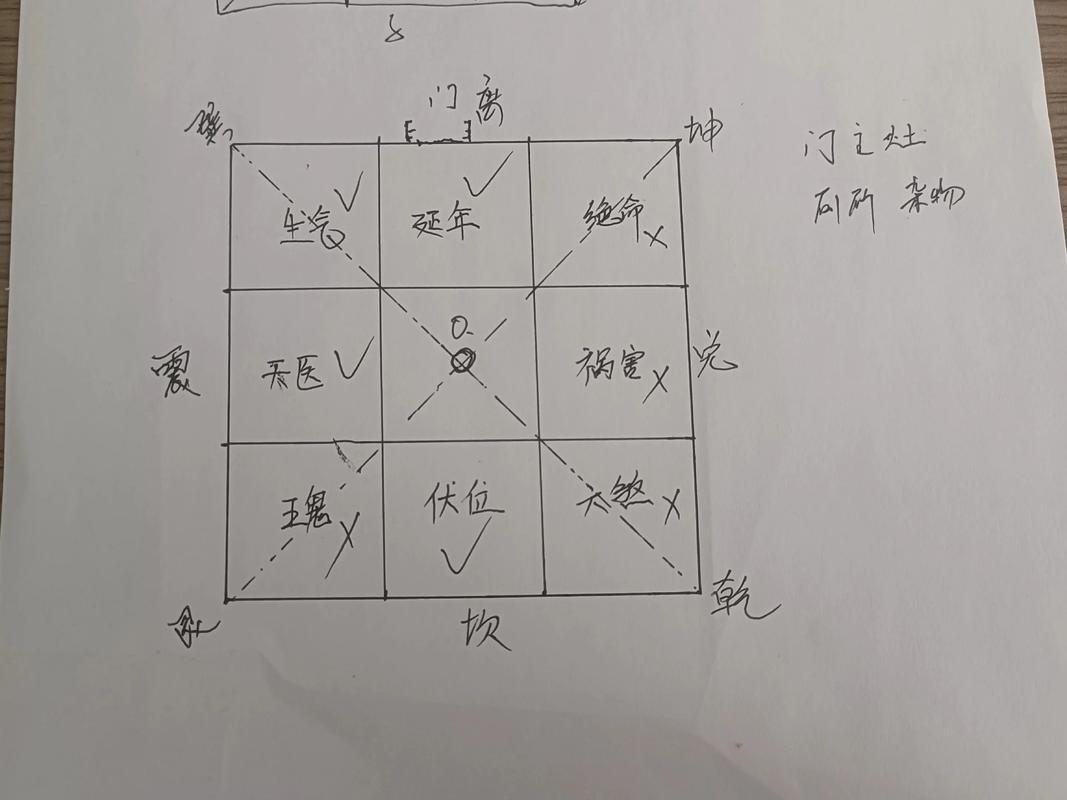 门 离
坤
门主灶
厕所 杂物
生气 延年 绝命
震 天医 祸害 兑
五鬼 伏位 六煞
坎 乾